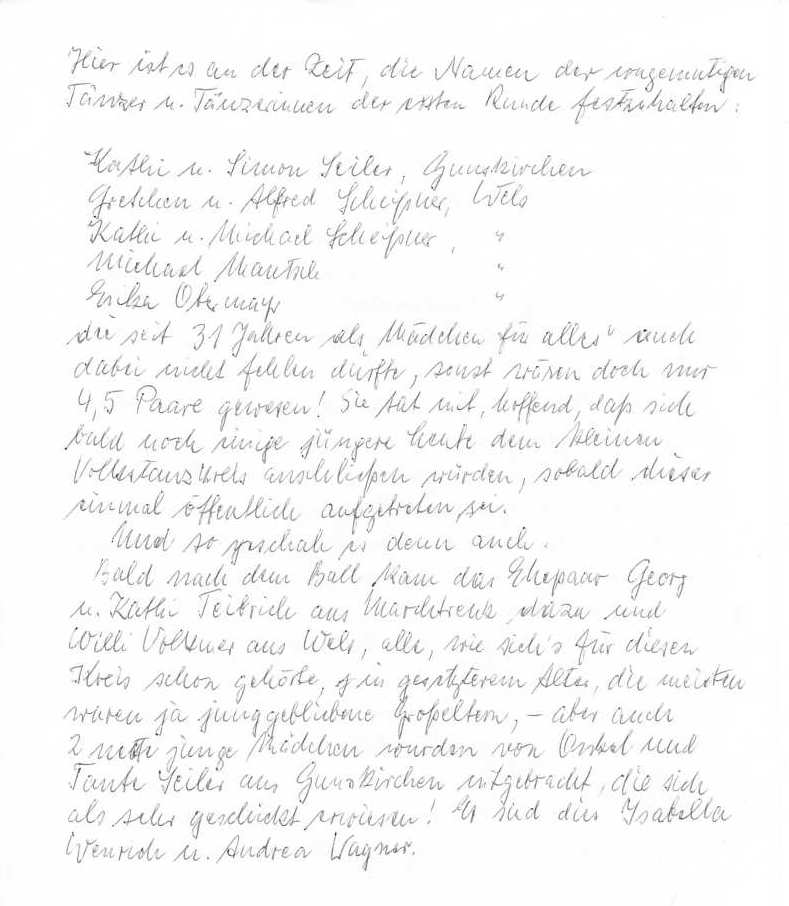 Hier ist es an der Zeit, die Namen der wagemutigen
Tänzer u. Tänzerinnen der ersten Runde festzuhalten:
Kathi u. Simon Seiler, Gunskirchen
Gretchen u. Alfred Scheißner, Wels
Kathi u. Michael Scheißner, "
Michael Mantsch "
Erika Obermayr "
die seit 31 Jahren als Mädchen für alles" auch
dabei nicht fehlen dürfte, sonst wären doch nur
4,5 Paare gewesen! Sie tat mit, hoffend, daß sich
bald noch einige jüngere Leute dem kleinen
Volkstanzkreis anschließen würden, sobald dieser
einmal öffentlich aufgetreten sei.
Und so geschah es denn auch.
Bald nach dem Ball kam das Ehepaar Georg
u. Kathi Teibrich aus Marchtrenk dazu und
Willi Volkmer aus Wels, alle, wie sich's für diesen
Kreis schon gehörte, in gesetzterem Alter, die meisten
waren ja junggebliebene Großeltern, – aber auch
2 nette junge Mädchen wurden von Onkel und
Tante Seiler aus Gunskirchen mitgebracht, die sich
als sehr geschickt erwiesen! Es sind dies Isabella
Wenrich u. Andrea Wagner.